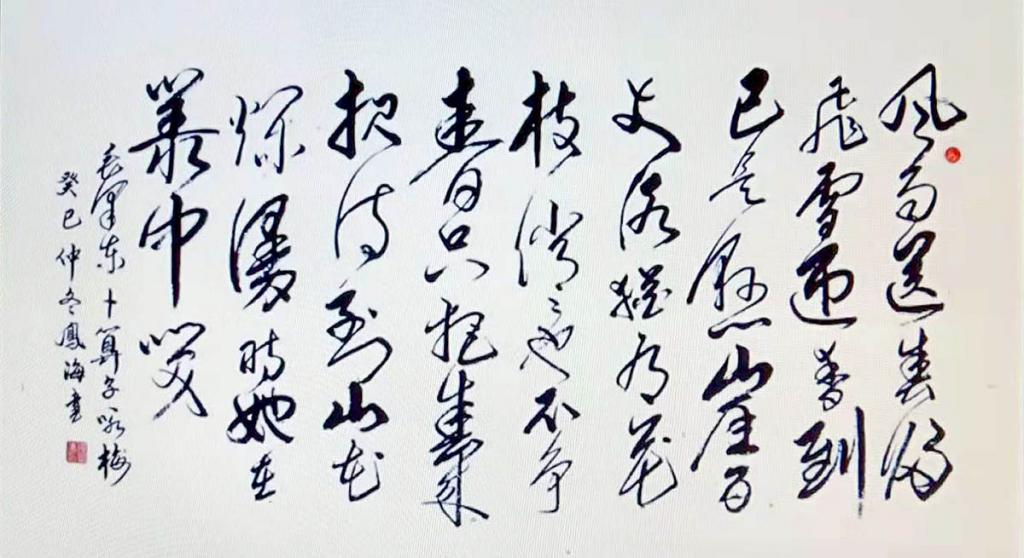 风雨送春归
飞雪迎春到
已是悬崖百
丈冰猶有花
枝俏也不争
春只把春来
报待到山花
爛漫时她在
叢中笑
毛澤东卜算子咏梅
癸巳仲冬鳳海書